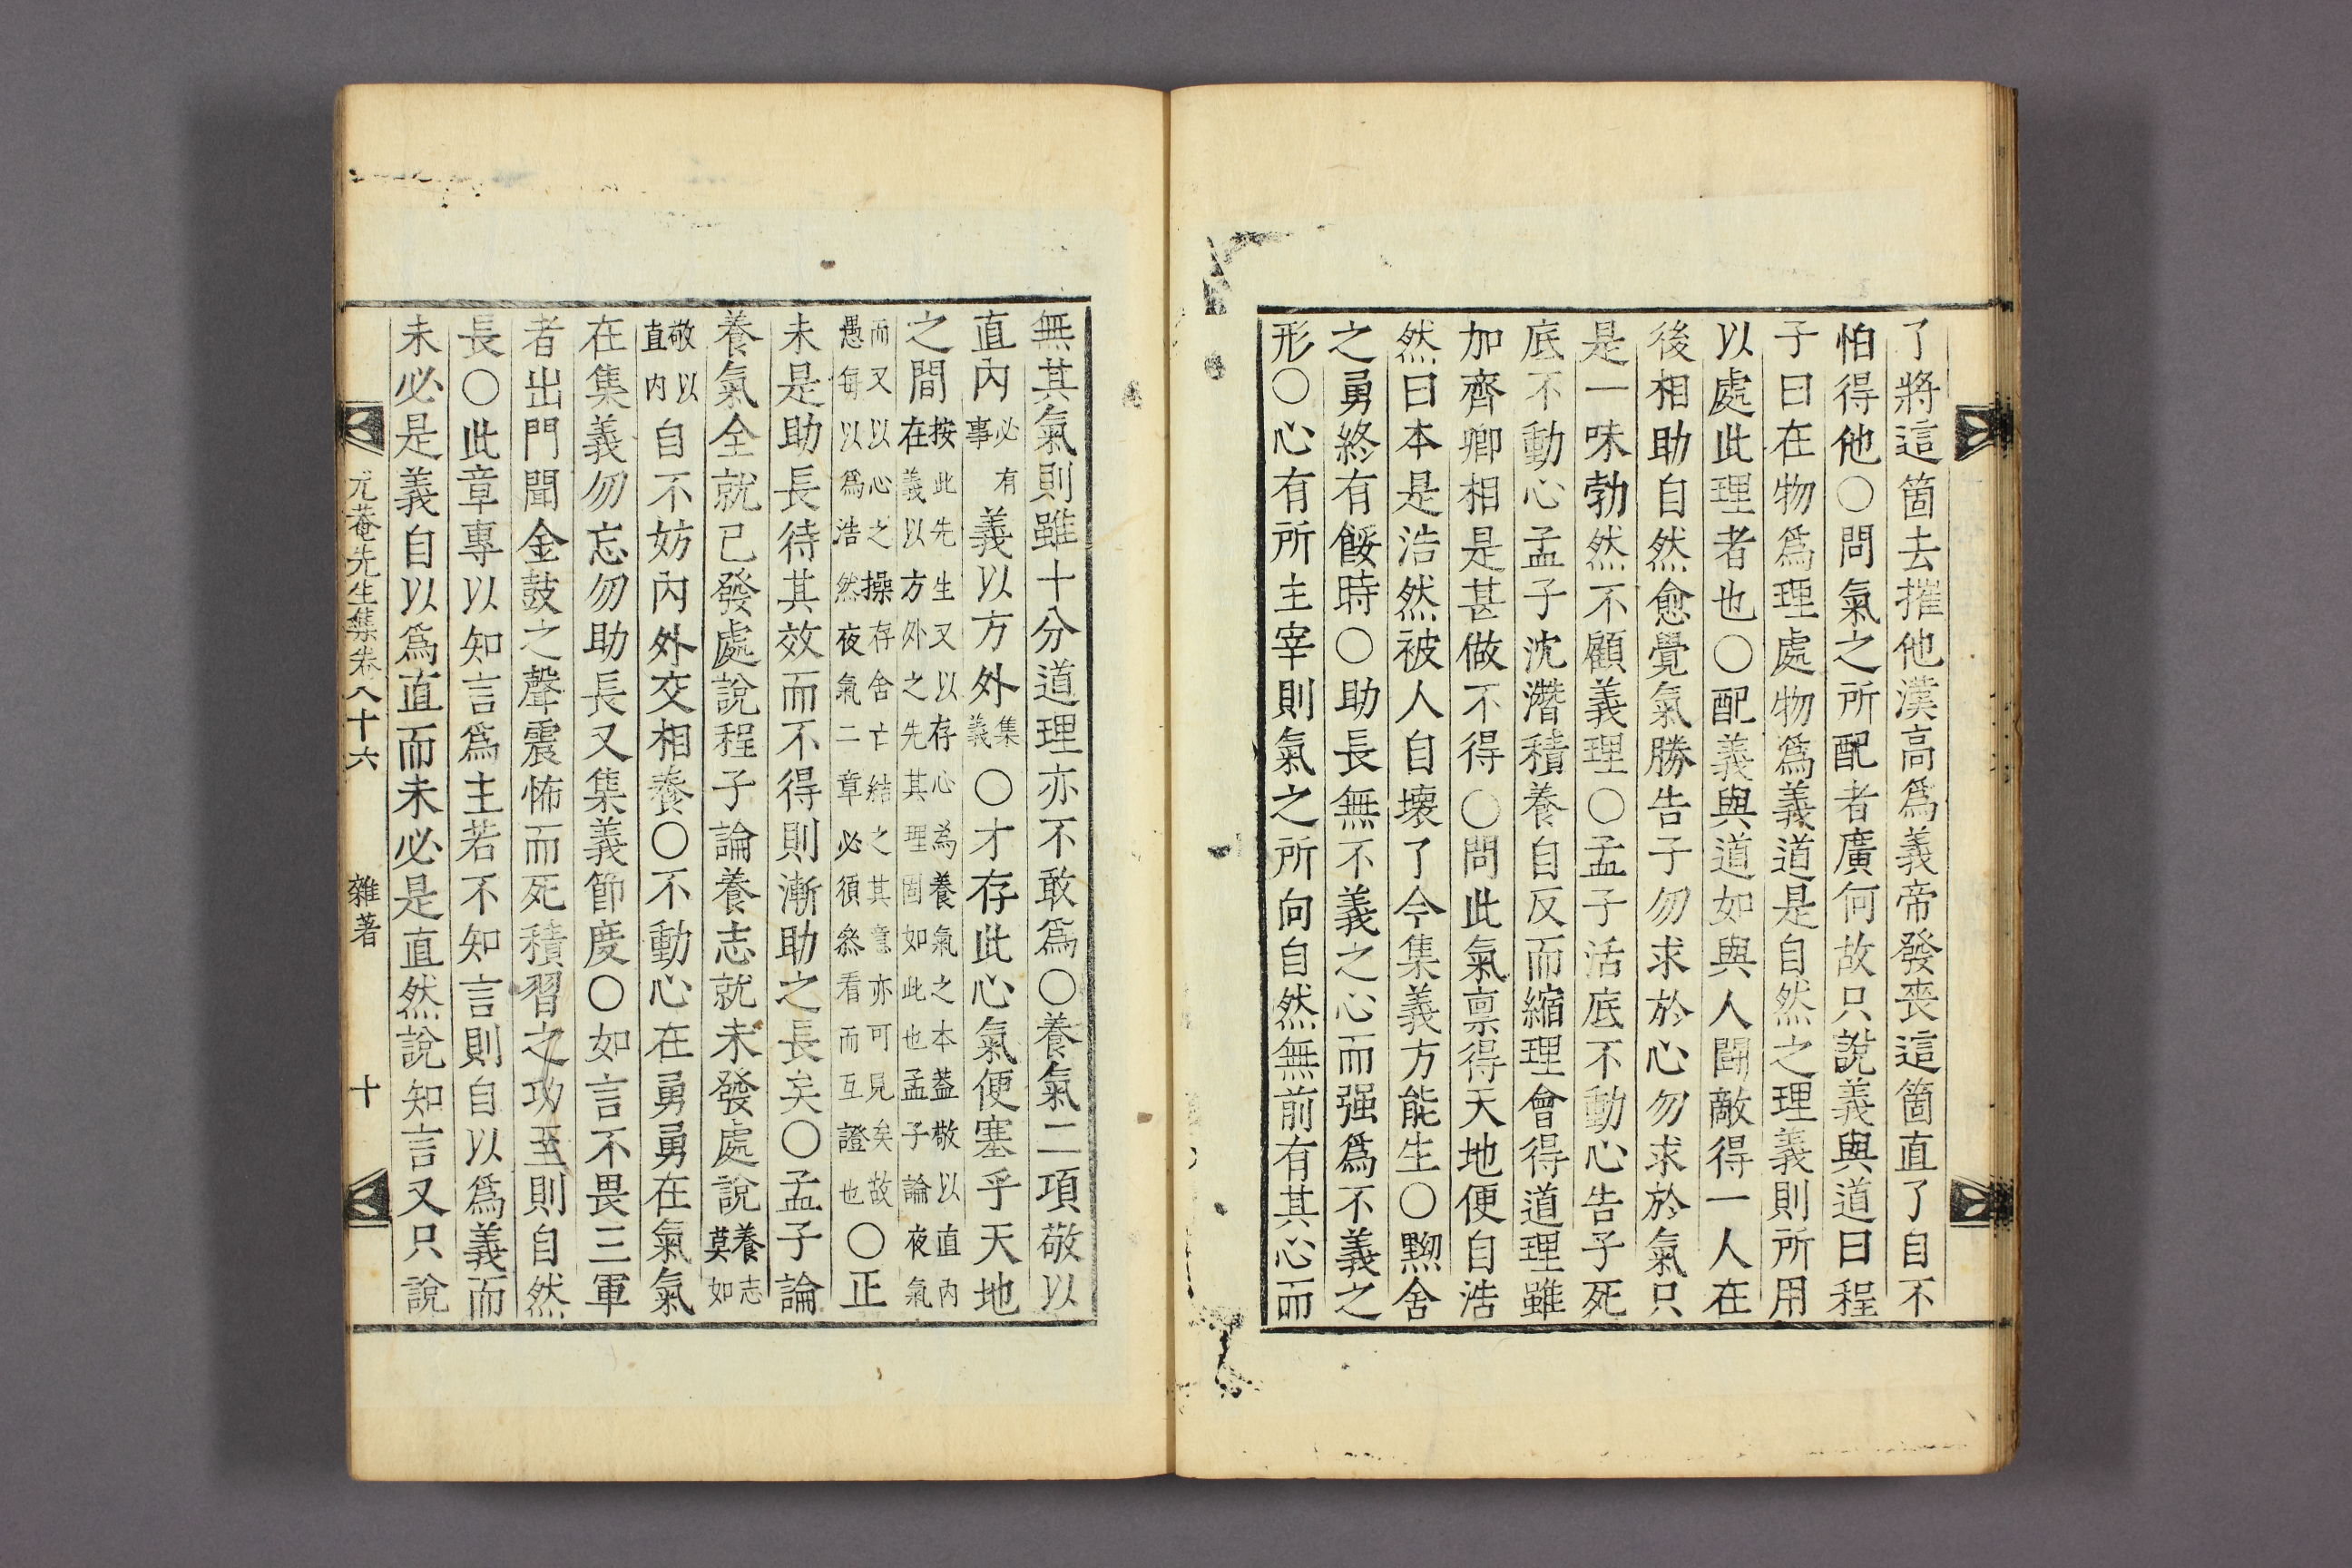 了將這箇去摧他漢高爲義帝發喪這箇直了自不
怕得他○問氣之所配者廣何故只說義與道曰程
子曰在物爲理處物爲義道是自然之理義則所用
以處此理者也○配義與道如與人鬪敵得一人在
後相助自然愈覺氣勝告子勿求於心勿求於氣只
是一味勃然不顧義理○孟子活底不動心告子死
底不動心孟子沈濳積養自反而縮理會得道理雖
加齊卿相是甚做不得○問此氣禀得天地便自浩
然曰本是浩然被人自壞了今集義方能生○黝舍
之勇終有餒時○助長無不義之心而强爲不義之
形○心有所主宰則氣之所向自然無前有其心而
無其氣則雖十分道理亦不敢爲○養氣二項敬以
直內必有事義以方外集義○才存此心氣便塞乎天地
之間按此先生又以存心爲養氣之本葢敬以直內在義以方外之先其理固如此也孟子論夜氣
而又以心之操存舍亡結之其意亦可見矣故愚每以爲浩然夜氣二章必須叅看而互證也○正
未是助長待其效而不得則漸助之長矣○孟子論
養氣全就已發處說程子論養志就未發處說養志莫如
敬以直内自不妨內外交相養○不動心在勇勇在氣氣
在集義勿忘勿助長又集義節度○如言不畏三軍
者出門聞金鼓之聲震怖而死積習之功至則自然
長○此章專以知言爲主若不知言則自以爲義而
未必是義自以爲直而未必是直然說知言又只說
尤菴先生集卷八十六 雜著 十